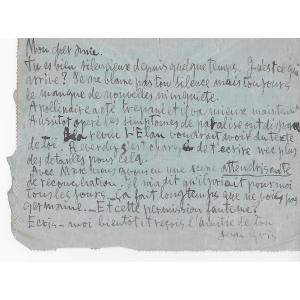 Mon cher ami.
Tu es bien silencieux depuis quelque temps. Qu'est ce qui
arrive? Je ne blame pas ton silence mais toujours
le manque de nouvelles m'inquiete.
Apollinaire a été trepané et il va mieux maintenant
Aussitot operé les symptomes de paralisie ont disparu
La revue L'Elan voudrait avoir du texte
de toi. Reverdy est chargé de t'ecrire avec plus
des details pour cela.
Avec Marc nous avons eu une scene attendrissante
de réconciliation. Il m'a dit qu'il priait pour moi
tous les jours. Ça fait longtemps que ne vois pas
germaine. Et cette permission fantome?
Ecris-moi bientot et reçois l'amitié de ton
Juan Gris